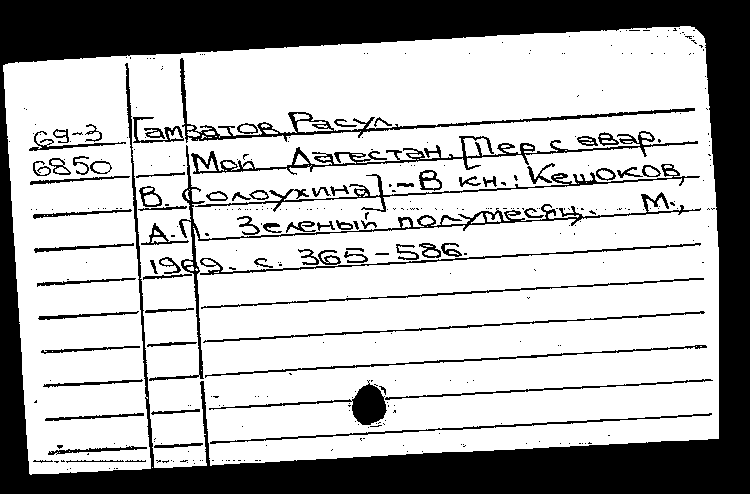 69-3 Гамзатов, Расул.
6850 Мой Дагестан. [Пер. с авар.
В. Солоухина]. - В кн.: Кешоков,
А.П. Зеленый полумесяц. М.,
1969. с. 365-586.